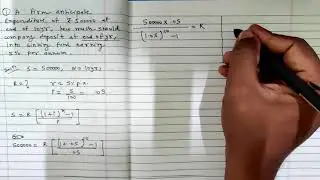 ① A firm anticipate
Expenditure of ₹ 500000 at
end of 10yr, how much should
company deposit at end of yr,
into sinking fund earning
5% per annum.
S = 500000 N = 10 yrs
R = ? r = 5% p.a.
r = 5/100 = .05
S = R [ (1+r)ⁿ - 1 / r ]
500000 = R [ (1+.05)¹⁰ - 1 / .05 ]
500000 x .05 / (1.05)¹⁰ - 1 = R